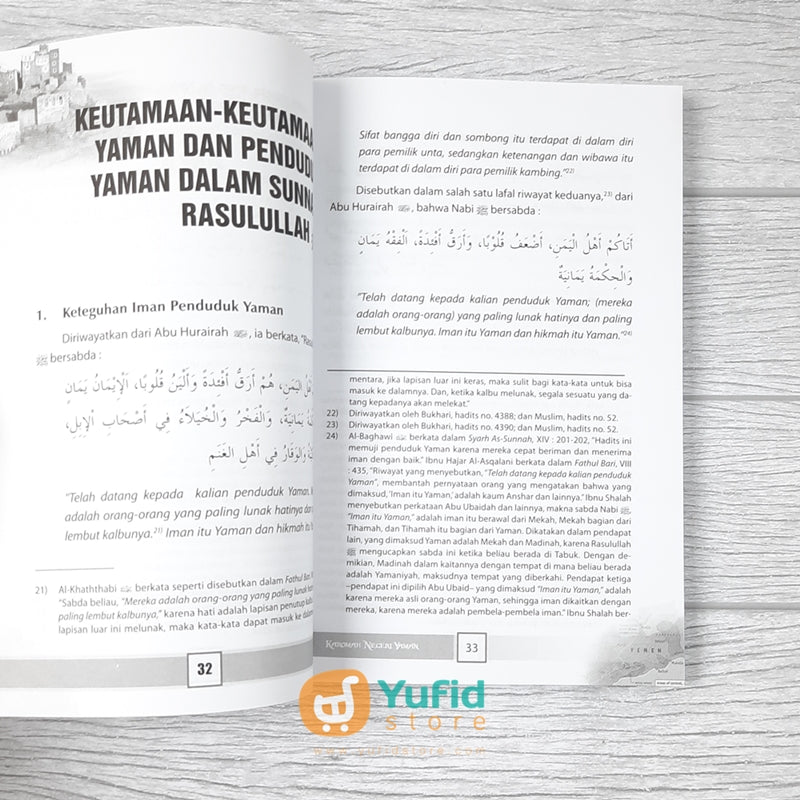 KEUTAMAAN-KEUTAMAA
YAMAN DAN PENDUDU
YAMAN DALAM SUNNA
RASULULLAH
1. Keteguhan Iman Penduduk Yaman
Diriwayatkan dari Abu Hurairah, ia berkata, "Rasu
ﷺ bersabda :
أَهْلُ الْيَمَنِ، هُمْ أَرَقُّ أَفْئِدَةً وَأَلْيَنُ قُلُوبًا، الْإِيْمَانُ يَمَانٍ
يَمَانِيَةٌ، وَالْفَخْرُ وَالْخُيَلَاءُ فِي أَصْحَابِ الْإِبِلِ،
وَالْوَقَارُ فِي أَهْلِ الْغَنَمِ
"Telah datang kepada kalian penduduk Yaman,
adalah orang-orang yang paling lunak hatinya dan
lembut kalbunya.21) Iman itu Yaman dan hikmah itu
21) Al-Khaththabi berkata seperti disebutkan dalam Fathul Bari,
"Sabda beliau, "Mereka adalah orang-orang yang paling lunak
paling lembut kalbunya," karena hati adalah lapisan penutup kalbu
lapisan luar ini melunak, maka kata-kata dapat masuk ke dalam
32
Sifat bangga diri dan sombong itu terdapat di dalam diri
para pemilik unta, sedangkan ketenangan dan wibawa itu
terdapat di dalam diri para pemilik kambing."22)
Disebutkan dalam salah satu lafal riwayat keduanya,23) dari
Abu Hurairah, bahwa Nabi ﷺ bersabda :
أَتَاكُمْ أَهْلُ الْيَمَنِ، أَضْعَفُ قُلُوْبًا، وَأَرَقُّ أَفْئِدَةً، الْفِقْهُ يَمَانٍ
وَالْحِكْمَةُ يَمَانِيَةٌ
"Telah datang kepada kalian penduduk Yaman; (mereka
adalah orang-orang) yang paling lunak hatinya dan paling
lembut kalbunya. Iman itu Yaman dan hikmah itu Yaman."24)
mentara, jika lapisan luar ini keras, maka sulit bagi kata-kata untuk bisa
masuk ke dalamnya. Dan, ketika kalbu melunak, segala sesuatu yang da-
tang kepadanya akan melekat."
22) Diriwayatkan oleh Bukhari, hadits no. 4388; dan Muslim, hadits no. 52.
23) Diriwayatkan oleh Bukhari, hadits no. 4390; dan Muslim, hadits no. 52.
24) Al-Baghawi berkata dalam Syarh As-Sunnah, XIV : 201-202, "Hadits ini
memuji penduduk Yaman karena mereka cepat beriman dan menerima
iman dengan baik." Ibnu Hajar Al-Asqalani berkata dalam Fathul Bari, VIII
: 435, "Riwayat yang menyebutkan, "Telah datang kepada kalian penduduk
Yaman", membantah pernyataan orang yang mengatakan bahwa yang
dimaksud, 'Iman itu Yaman,' adalah kaum Anshar dan lainnya." Ibnu Shalah
menyebutkan perkataan Abu Ubaidah dan lainnya, makna sabda Nabi ﷺ,
"Iman itu Yaman," adalah iman itu berawal dari Mekah, Mekah bagian dari
Tihamah, dan Tihamah itu bagian dari Yaman. Dikatakan dalam pendapat
lain, yang dimaksud Yaman adalah Mekah dan Madinah, karena Rasulullah
ﷺ mengucapkan sabda ini ketika beliau berada di Tabuk. Dengan de-
mikian, Madinah dalam kaitannya dengan tempat di mana beliau berada
adalah Yamaniyah, maksudnya tempat yang diberkahi. Pendapat ketiga
–pendapat ini dipilih Abu Ubaid– yang dimaksud "Iman itu Yaman," adalah
karena mereka asli orang-orang Yaman, sehingga iman dikaitkan dengan
mereka, karena mereka adalah pembela-pembela iman." Ibnu Shalah ber-
KAROMAH NEGERI YAMAN 33
YEMEN
Yufid
store
www.yufidstore.com